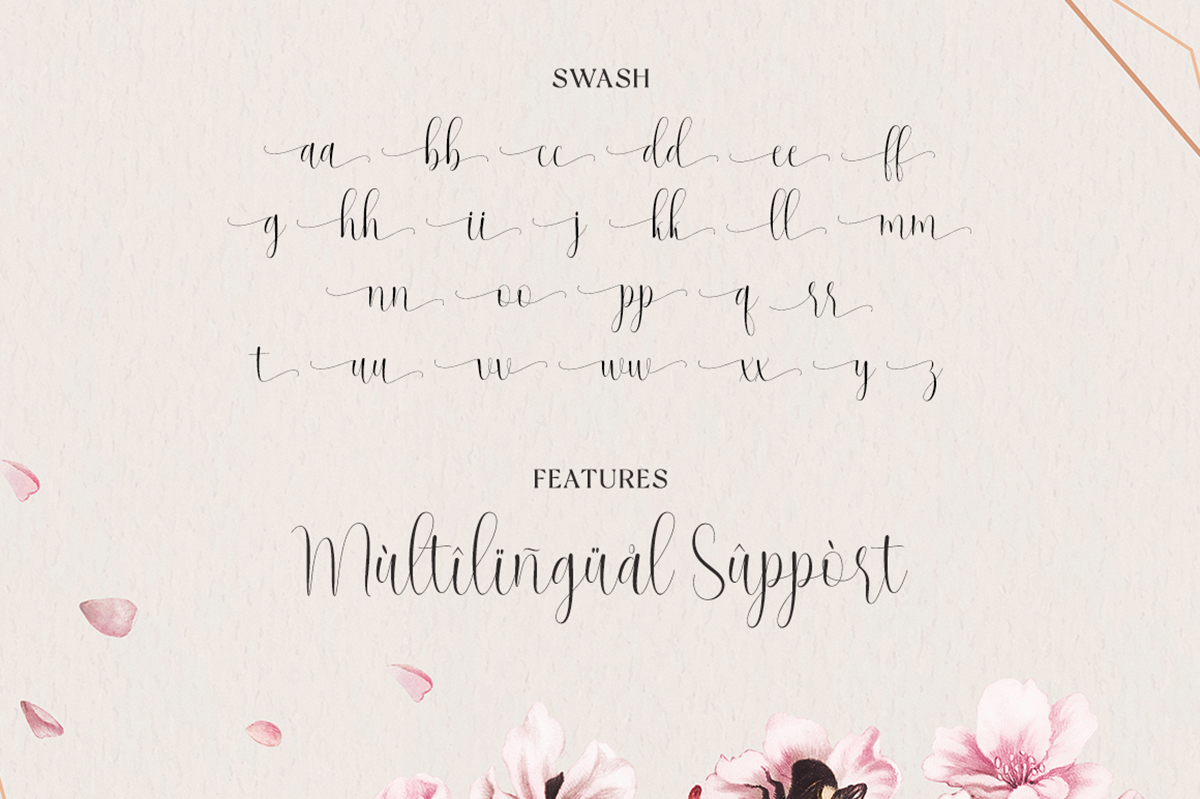 SWASH
aa bb cc dd ee ff
g hh ii j kk ll mm
nn oo pp q rr
t uu vv ww xx y z
FEATURES
Mùltîlïñgüål Sûppòrt